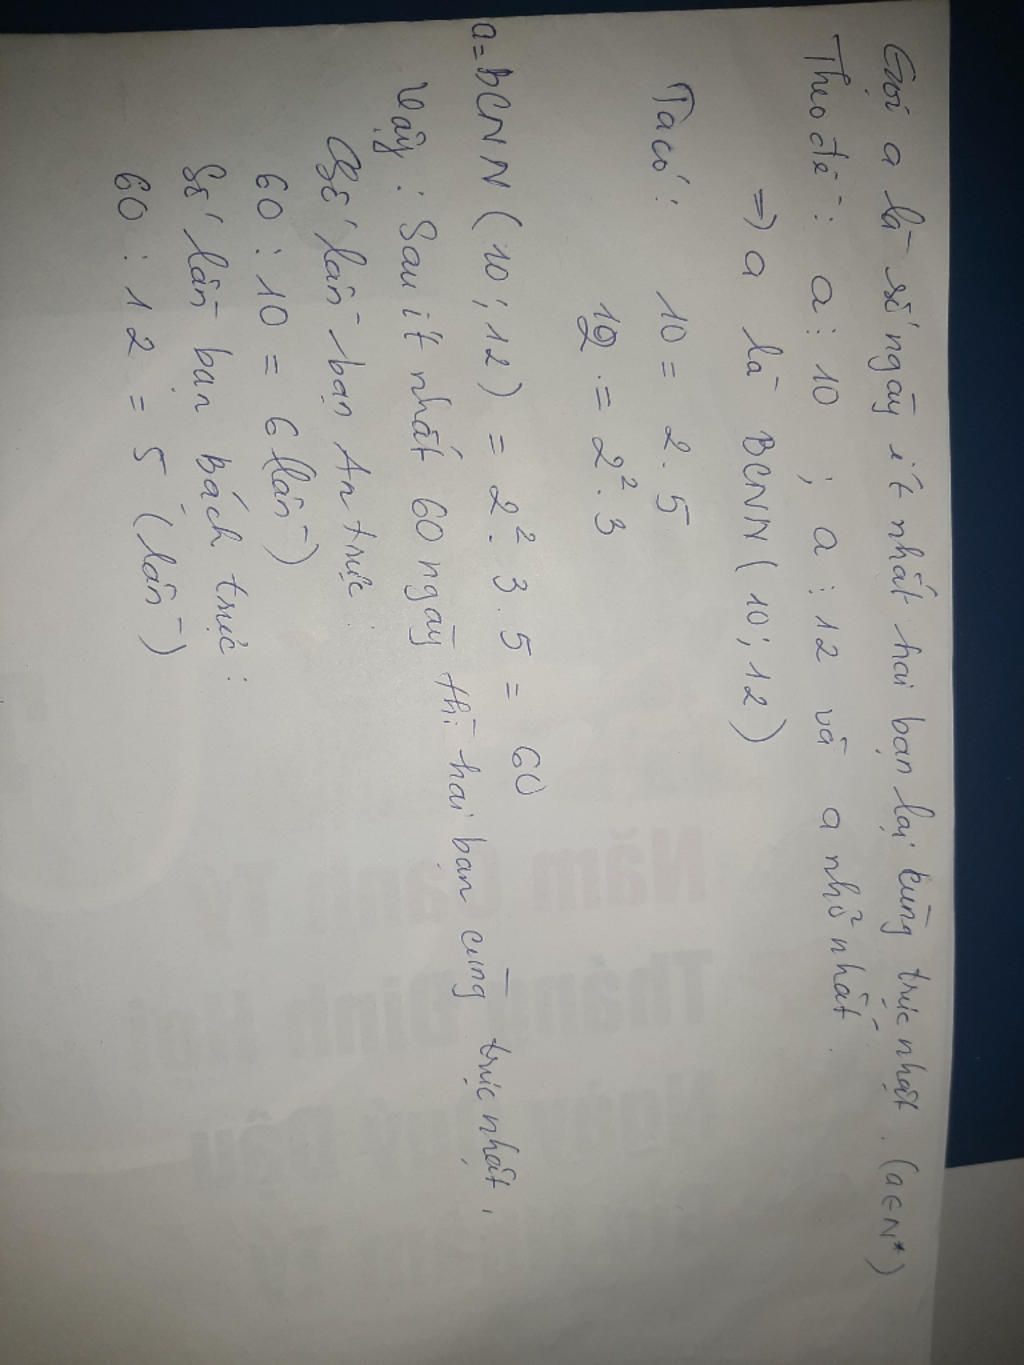 Gọi a là số ngày ít nhất hai bạn lại cùng trực nhật. (a∈N*)
Theo đề: a⋮10 ; a⋮12 và a nhỏ nhất.
=> a là BCNN(10;12)
Ta có: 10 = 2.5
12 = 2².3
a = BCNN(10;12) = 2².3.5 = 60
Vậy: Sau ít nhất 60 ngày thì hai bạn cùng trực nhật.
Số lần bạn An trực:
60 : 10 = 6 (lần)
Số lần bạn bách trực:
60 : 12 = 5 (lần)
Năm Canh Tý
Tháng Đinh Hợi
Ngày Quý Dậu